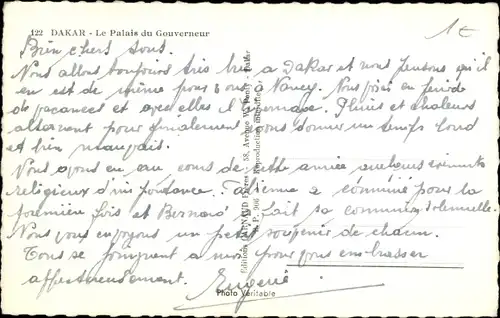 122 DAKAR - Le Palais du Gouverneur
1€
Bien chers tous.
Nous allons toujours très bien à Dakar et nous pensons qu'il
en est de même pour vous à Nancy. Nous voici en période
de vacances et avec elles l'hivernage. Pluies et chaleurs
alternent pour finalement nous donner un temps lourd
et bien mauvais.
Nous avons eu au cours de cette année quelques événements
religieux d'importance. Fabienne a communié pour la
première fois et Bernard a fait sa communion solennelle.
Nous vous envoyons un petit souvenir de chacun.
Tous se joignent à moi pour vous embrasser
affectueusement.
Eugené
Photo Véritable
Reproduction interdite